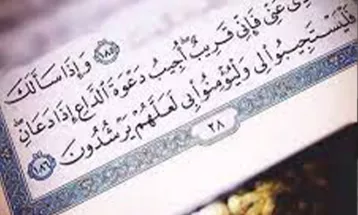 ﴿١٨٥﴾ وَإِذَا سَأَلَكَ
عَنِّى فَإِنِّى قَرِيبٌ أُجِيبُ دَعْوَةَ ٱلدَّاعِ إِذَا دَعَانِ
فَلْيَسْتَجِيبُوا۟ لِى وَلْيُؤْمِنُوا۟ بِى لَعَلَّهُمْ يَرْشُدُونَ ﴿١٨٦﴾
٢٨